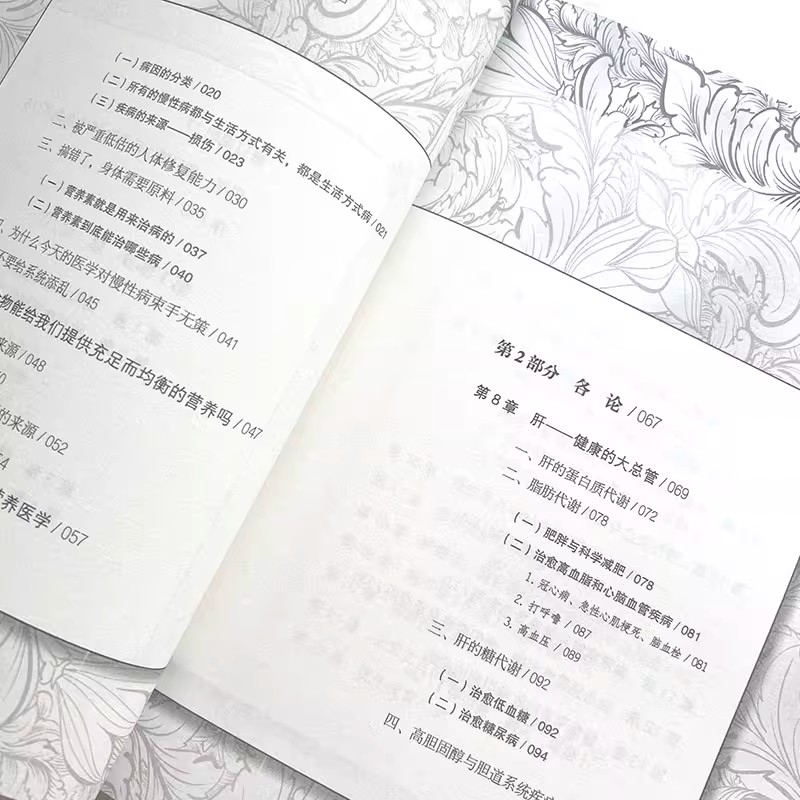 （一）病因的分类 / 020
（二）所有的慢性病都与生活方式有关，都是生活方式病 / 021
（三）疾病的来源——损伤 / 023
二、被严重低估的人体修复能力 / 030
三、搞错了，身体需要原料 / 035
（一）营养素就是用来治病的 / 037
（二）营养素到底能治哪些病 / 040
、为什么今天的医学对慢性病束手无策 / 041
不要给系统添乱 / 045
物能给我们提供充足而均衡的营养吗 / 047
来源 / 048
的来源 / 052
养医学 / 057
第2部分 各 论 / 067
第8章 肝——健康的大总管 / 069
一、肝的蛋白质代谢 / 072
二、脂肪代谢 / 078
（一）肥胖与科学减肥 / 078
（二）治愈高血脂和心脑血管疾病 / 081
1. 冠心病、急性心肌梗死、脑血栓 / 081
2. 打呼噜 / 087
3. 高血压 / 089
三、肝的糖代谢 / 092
（一）治愈低血糖 / 092
（二）治愈糖尿病 / 094
四、高胆固醇与胆道系统疾